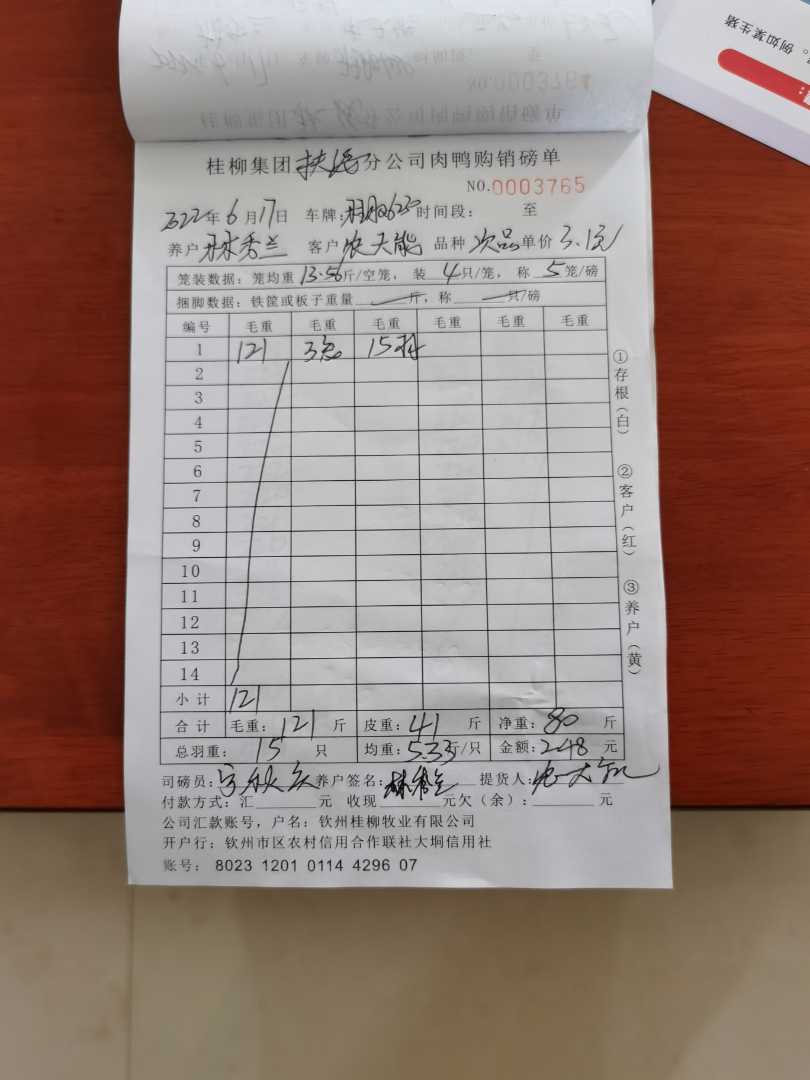 例如某生猪
NO.0003764
桂柳集团扶绥分公司肉鸭购销磅单
NO.0003765
2022年6月17日 车牌: 时间段: 至
养户 林秀兰 客户 农天能 品种 次品 单价 3.1元
笼装数据: 笼均重13.56斤/空笼, 装4只/笼, 称5笼/磅
捆脚数据: 铁筐或板子重量 斤, 称 只/磅
编号 毛重 毛重 毛重 毛重 毛重 毛重
1 121 3笼 15只
2
3
4
5
6
7
8
9
10
11
12
13
14
小计 121
合计 毛重: 121 斤 皮重: 41 斤 净重: 80 斤
总羽重: 15 只 均重: 5.33斤/只 金额: 248 元
司磅员: 养户签名: 林秀兰 提货人: 农天能
付款方式: 汇 元 收现 元欠(余): 元
公司汇款账号, 户名: 钦州桂柳牧业有限公司
开户行: 钦州市区农村信用合作联社大垌信用社
账号: 8023 1201 0114 4296 07
①存根(白)
②客户(红)
③养户(黄)